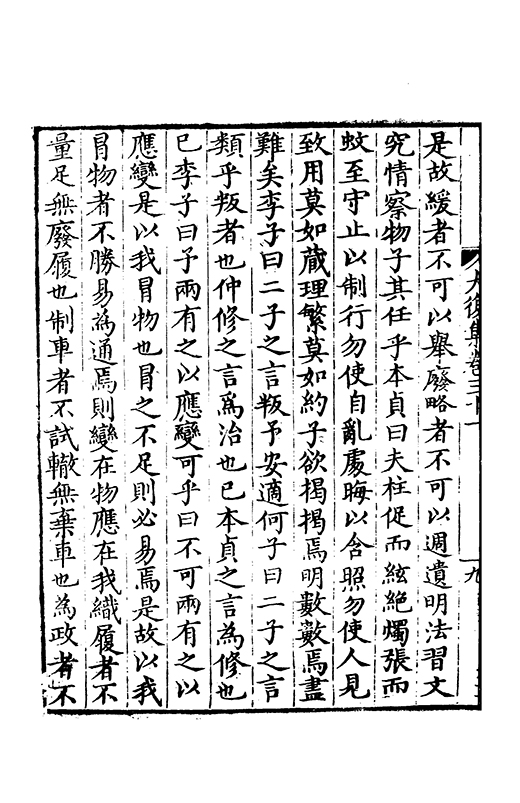 是故緩者不可以舉廢略者不可以週遺明法習文
究情察物子其任乎本貞曰夫柱促而絃絶燭張而
蚊至守止以制行勿使自亂處晦以含照勿使人見
致用莫如蕆理繁莫如約子欲揭揭焉明數數焉盡
難矣李子曰二子之言叛予安適何子曰二子之言
類乎叛者也仲修之言爲治也已本貞之言為修也
已李子曰予兩有之以應變可乎曰不可兩有之以
應變是以我冒物也冒之不足則必易焉是故以我
冒物者不勝易為通焉則變在物應在我織履者不
量足無廢履也制車者不試轍無棄車也為政者不
大復集卷三十一
九